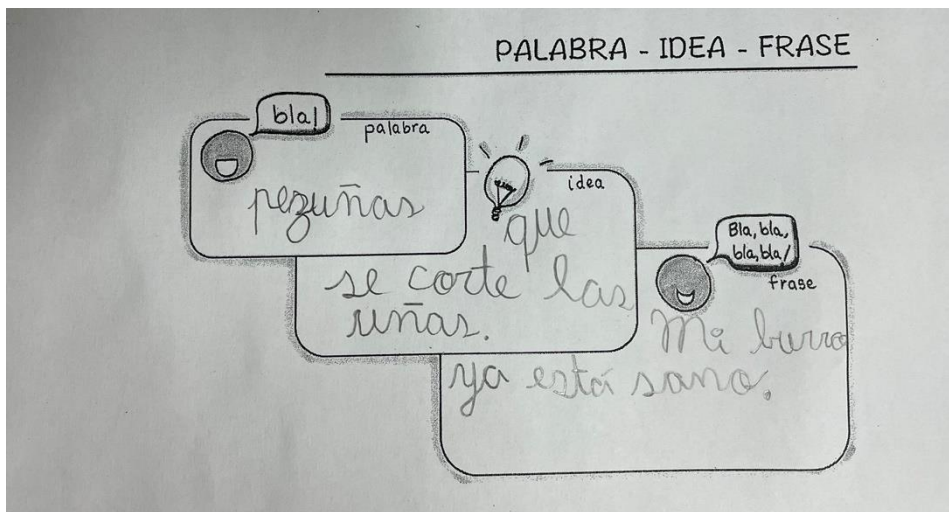 PALABRA - IDEA - FRASE
bla!
palabra
pezuñas
idea
que
se corte las
uñas.
Bla, bla,
bla, bla!
frase
Mi burro
ya está sano.